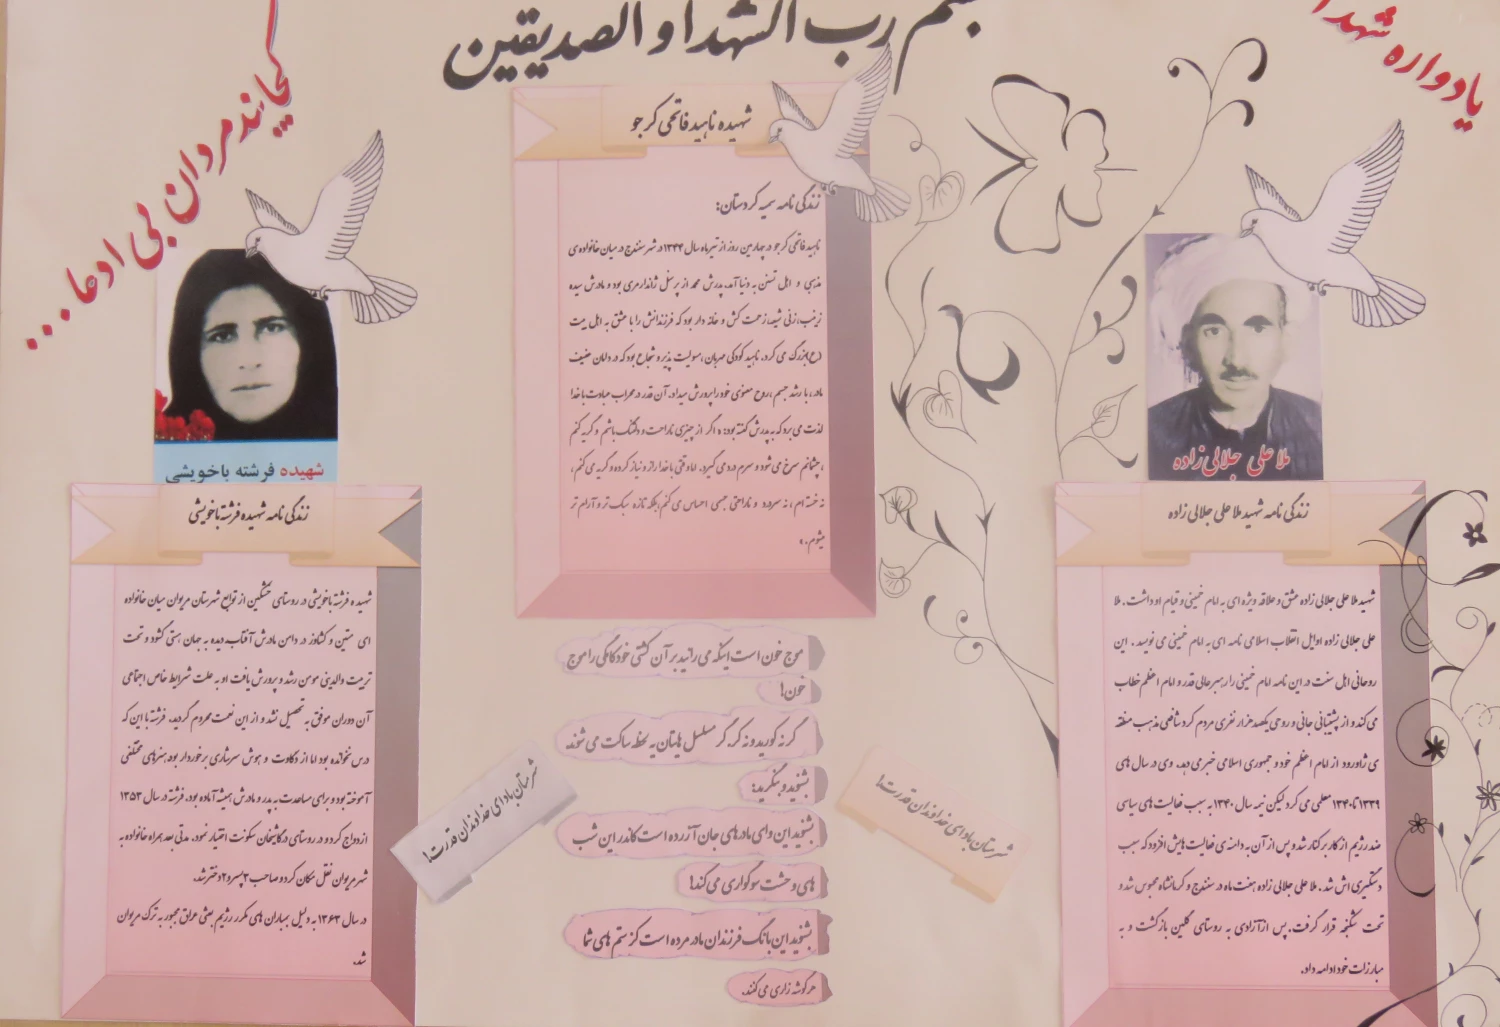 بسم رب الشهدا و الصدیقین
یادواره شهدا
کجایند مردان بی ادعا...
شهیده ناهید فاتحی کرجو
زندگی نامه سمیه کردستان:
ناهید فاتحی کرجو در چهارمین روز از تیرماه سال ۱۳۴۴ در شهر سنندج در میان خانواده ی
مذهبی و اهل تسنن به دنیا آمد. پدرش محمد از پرسنل ژاندارمری بود و مادرش سیده
زینب، زنی شیعه، زحمت کش و خانه دار بود که فرزندانش را با عشق به اهل بیت
(ع) بزرگ می کرد. ناهید کودکی مهربان، مسولیت پذیر و شجاع بود که در دامان عفیف
مادر، با رشد جسم، روح معنوی خود را پرورش میداد. آن قدر در محراب عبادت با خدا
لذت می برد که به پدرش گفته بود: « اگر از چیزی ناراحت و دلتنگ باشم و گریه کنم
، چشمانم سرخ می شود و سرم درد می گیرد. اما وقتی با خدا راز و نیاز کرده و گریه می کنم،
نه خسته ام، نه سردرد و ناراحتی جسمی احساس می کنم بلکه تازه سبک تر و آرام تر
میشوم. »
ملا علی جلالی زاده
زندگی نامه شهید ملا علی جلالی زاده
شهید ملا علی جلالی زاده عشق و علاقه ویژه ای به امام خمینی و قیام او داشت. ملا
علی جلالی زاده اوایل انقلاب اسلامی نامه ای به امام خمینی می نویسد. این
روحانی اهل سنت در این نامه امام خمینی را رهبر عالی قدر و امام اعظم خطاب
می کند و از پشتیبانی جانی و روحی یکصد هزار نفری مردم کرد شافعی مذهب منطقه
ی ژاورود از امام اعظم خود و جمهوری اسلامی خبر می دهد. وی در سال های
۱۳۳۹ تا ۱۳۴۰ معلمی می کرد لیکن نیمه سال ۱۳۴۰ به سبب فعالیت های سیاسی
ضد رژیم از کار بر کنار شد و پس از آن به دامنه ی فعالیت هایش افزود که سبب
دستگیری اش شد. ملا علی جلالی زاده هفت ماه در سنندج و کرمانشاه محبوس شد و
تحت شکنجه قرار گرفت. پس از آزادی به روستای گلین بازگشت و به
مبارزات خود ادامه داد.
شهیده فرشته باخویشی
زندگی نامه شهیده فرشته باخویشی
شهیده فرشته باخویشی در روستای خشکین از توابع شهرستان مریوان میان خانواده
ای متین و کشاورز در دامن مادرش آفتاب دیده به جهان هستی گشود و تحت
تربیت والدینی مومن رشد و پرورش یافت او به علت شرایط خاص اجتماعی
آن دوران موفق به تحصیل نشد و از این نعمت محروم گردید. فرشته با این که
درس نخوانده بود اما از ذکاوت و هوش سرشاری برخوردار بود هنرهای مختلفی
آموخته بود و برای مساعدت به پدر و مادرش همیشه آماده بود. فرشته در سال ۱۳۵۳
ازدواج کرد و در روستای درگاشیخان سکونت اختیار نمود. مدتی بعد همراه خانواده به
شهر مریوان نقل مکان کرد و صاحب ۳ پسر و ۲ دختر شد.
در سال ۱۳۶۳ به دلیل بمباران های مکرر رژیم بعثی عراق مجبور به ترک مریوان
شد.
موج خون است اینکه می رانید بر آن کشتی خودکامگی را موج
خون!
گر نه کورید و نه کر، گر مسلسل هایتان یه لحظه ساکت می شوند
بشنوید و بنگرید:
بشنوید این وای مادرهای جان آزرده است کاندر این شب
های وحشت سوگواری می کند!
بشنوید این بانگ فرزندان مادر مرده است کز ستم های شما
هر گوشه زاری می کنند.
شرمتان باد ای خداوندان قدرت!
شرمتان باد ای خداوندان قدرت!